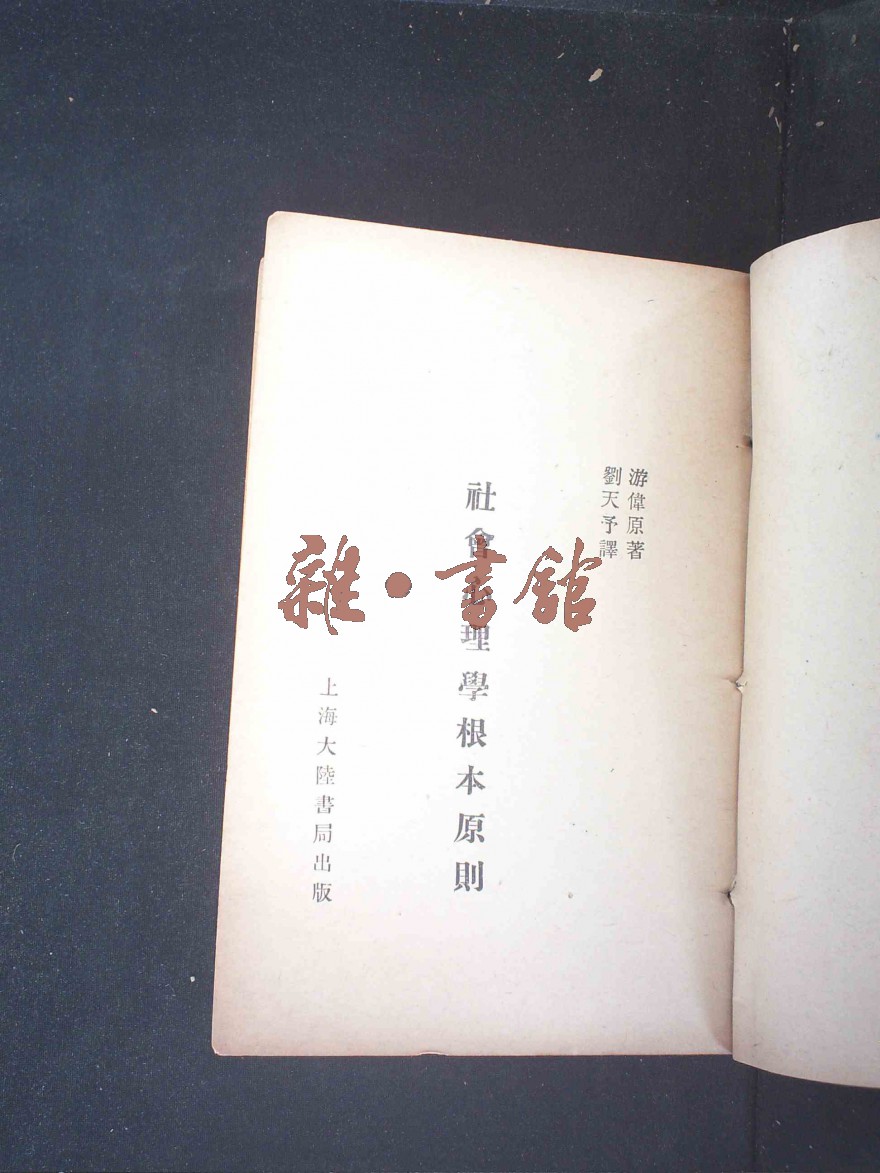 游偉原著
劉天予譯
社會心理學根本原則
上海大陸書局出版
雜·書館